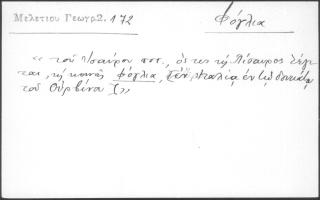 Μελετίου Γεωγρ2. 172
Φόγλια
« τοῦ Ἰσαύρου ποτ., ὅστις τῇ Πίσαυρος λέγε
ται, τῇ κοινῇ Φόγλια, [ἐν Ἰταλίᾳ ἐν τῷ δουκάτῳ
τοῦ Οὐρβίνο]»